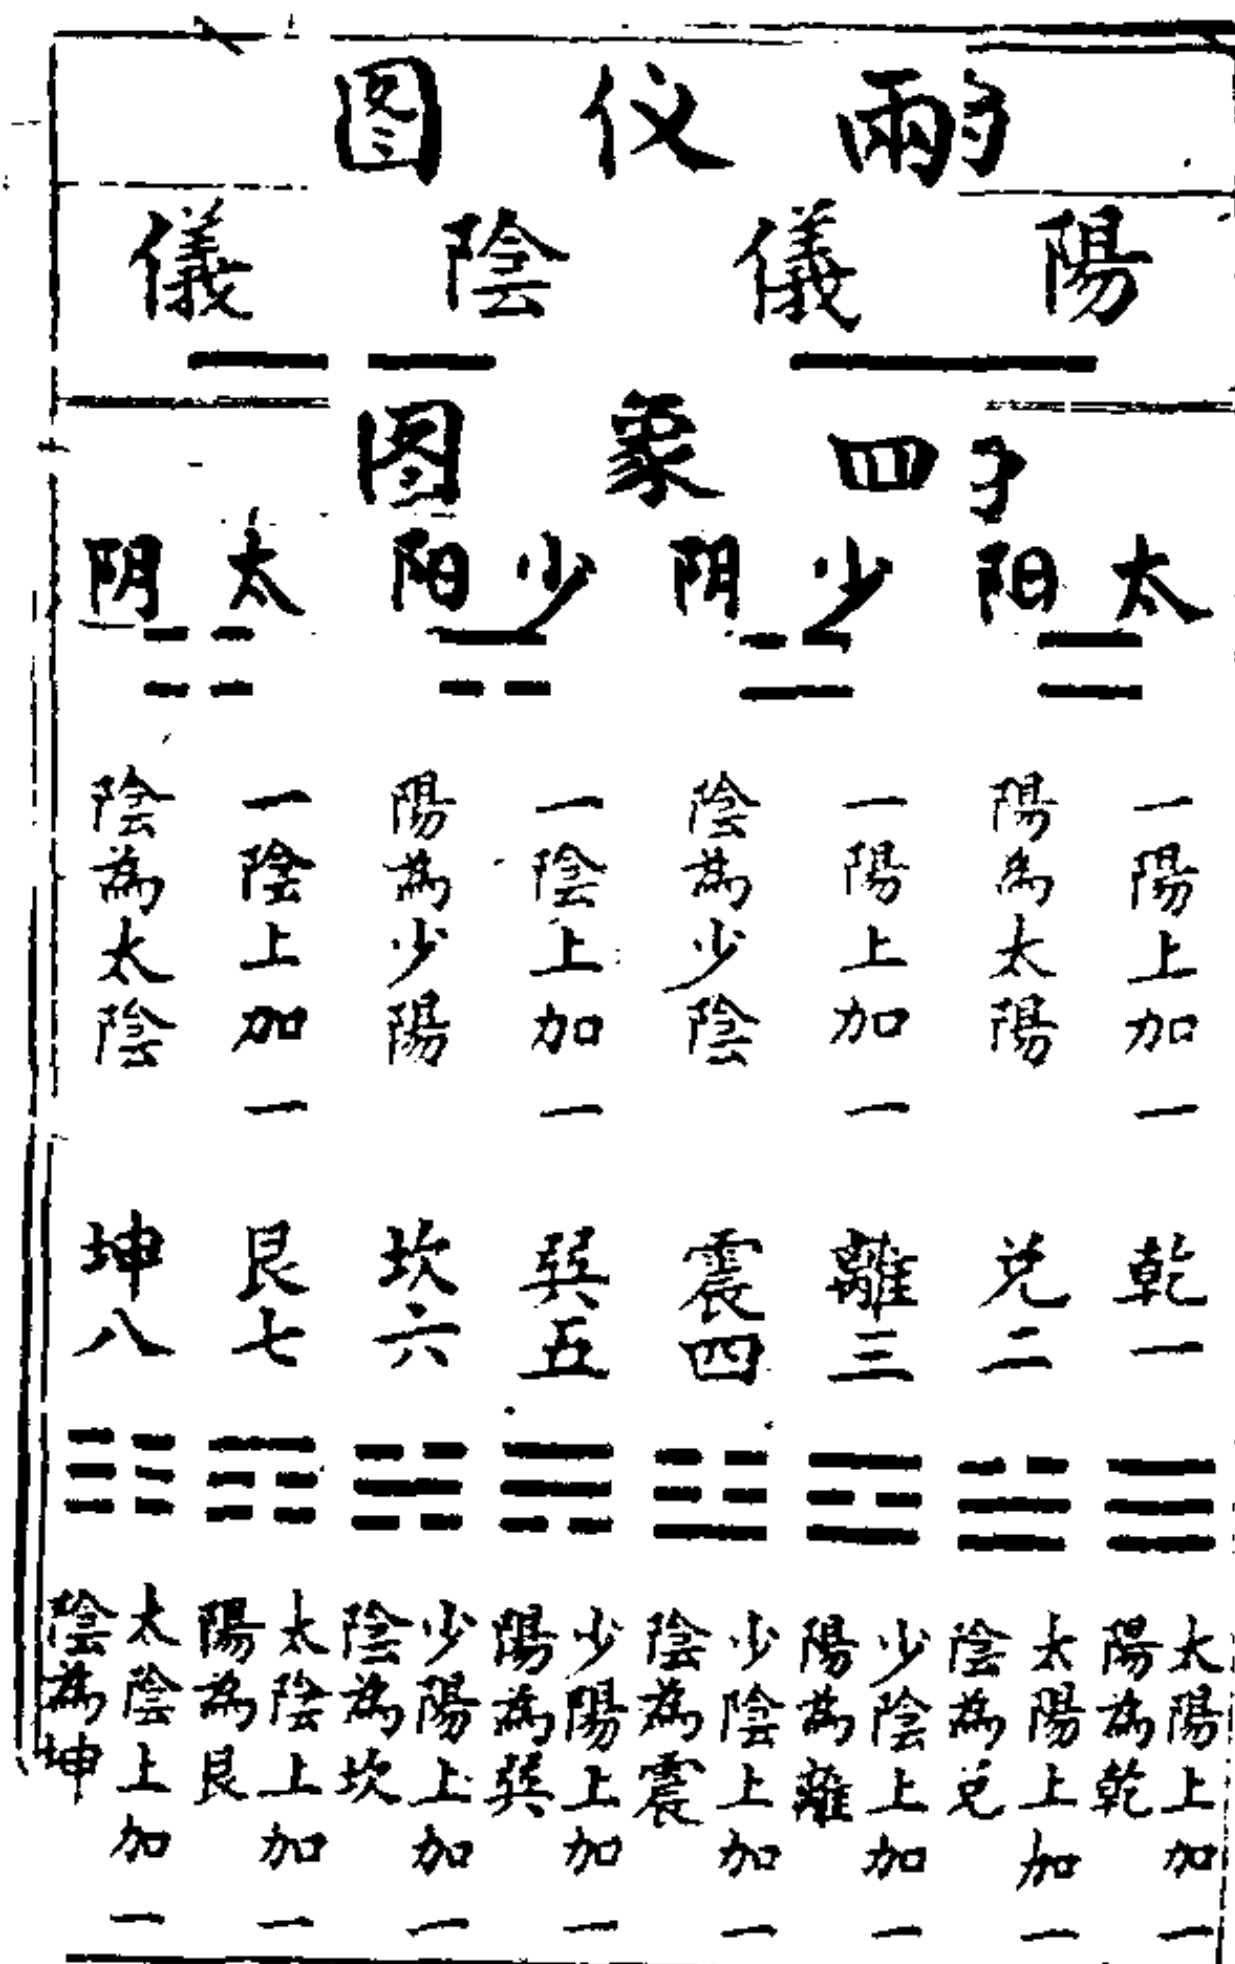 兩仪图
陽儀 陰儀
四象图
太阳 少阴 少阳 太阴
一陽上加一
陽為太陽
一陽上加一
陰為少陰
一陰上加一
陽為少陽
一陰上加一
陰為太陰
乾一
兌二
離三
震四
巽五
坎六
艮七
坤八
太陽上加一
陽為乾
太陽上加一
陰為兌
少陰上加一
陽為離
少陰上加一
陰為震
少陽上加一
陽為巽
少陽上加一
陰為坎
太陰上加一
陽為艮
太陰上加一
陰為坤